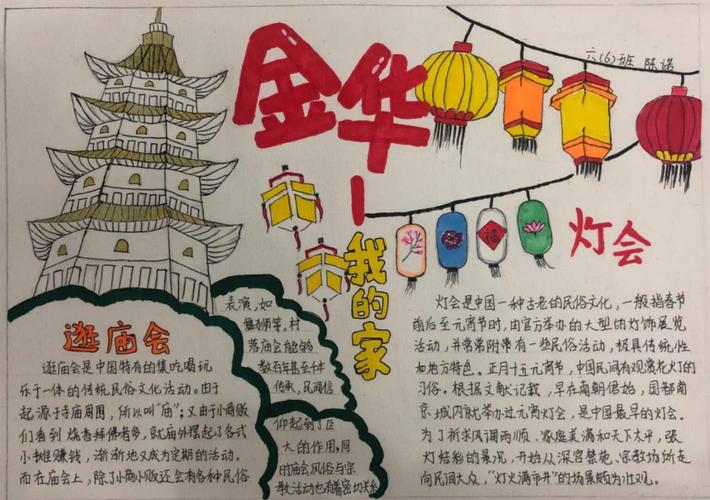 金华－我的家
六(6)班 陈诺
灯会
逛庙会
逛庙会是中国特有的集吃喝玩
乐于一体的传统民俗文化活动。由于
起源于寺庙周围，所以叫“庙”；又由于小商贩
们看到烧香拜佛者多，就庙外摆起了各式
小摊赚钱，渐渐地又成为定期的活动。
而在庙会上，除了小商小贩还会有各种民俗
表演，如
舞狮等。村
落庙会能够
数百年甚至千年
传承，民间信
仰起到了巨
大的作用，同
时庙会风俗与宗
教活动也有着密切关系
灯会是中国一种古老的民俗文化，一般指春节
前后至元宵节时，由官方举办的大型的灯饰展览
活动，并常常附带有一些民俗活动，极具传统性
和地方特色。正月十五元宵节，中国民间有观赏花灯的
习俗。根据文献记载，早在南朝偌始，国都南
京，城内就举办过元宵灯会，是中国最早的灯会。
为了祈求风调雨顺、家庭美满和天下太平，张
灯结彩的景况，开始从深宫禁苑、宗教场所走
向民间大众，“灯火满市井”的场景颇为壮观。
福